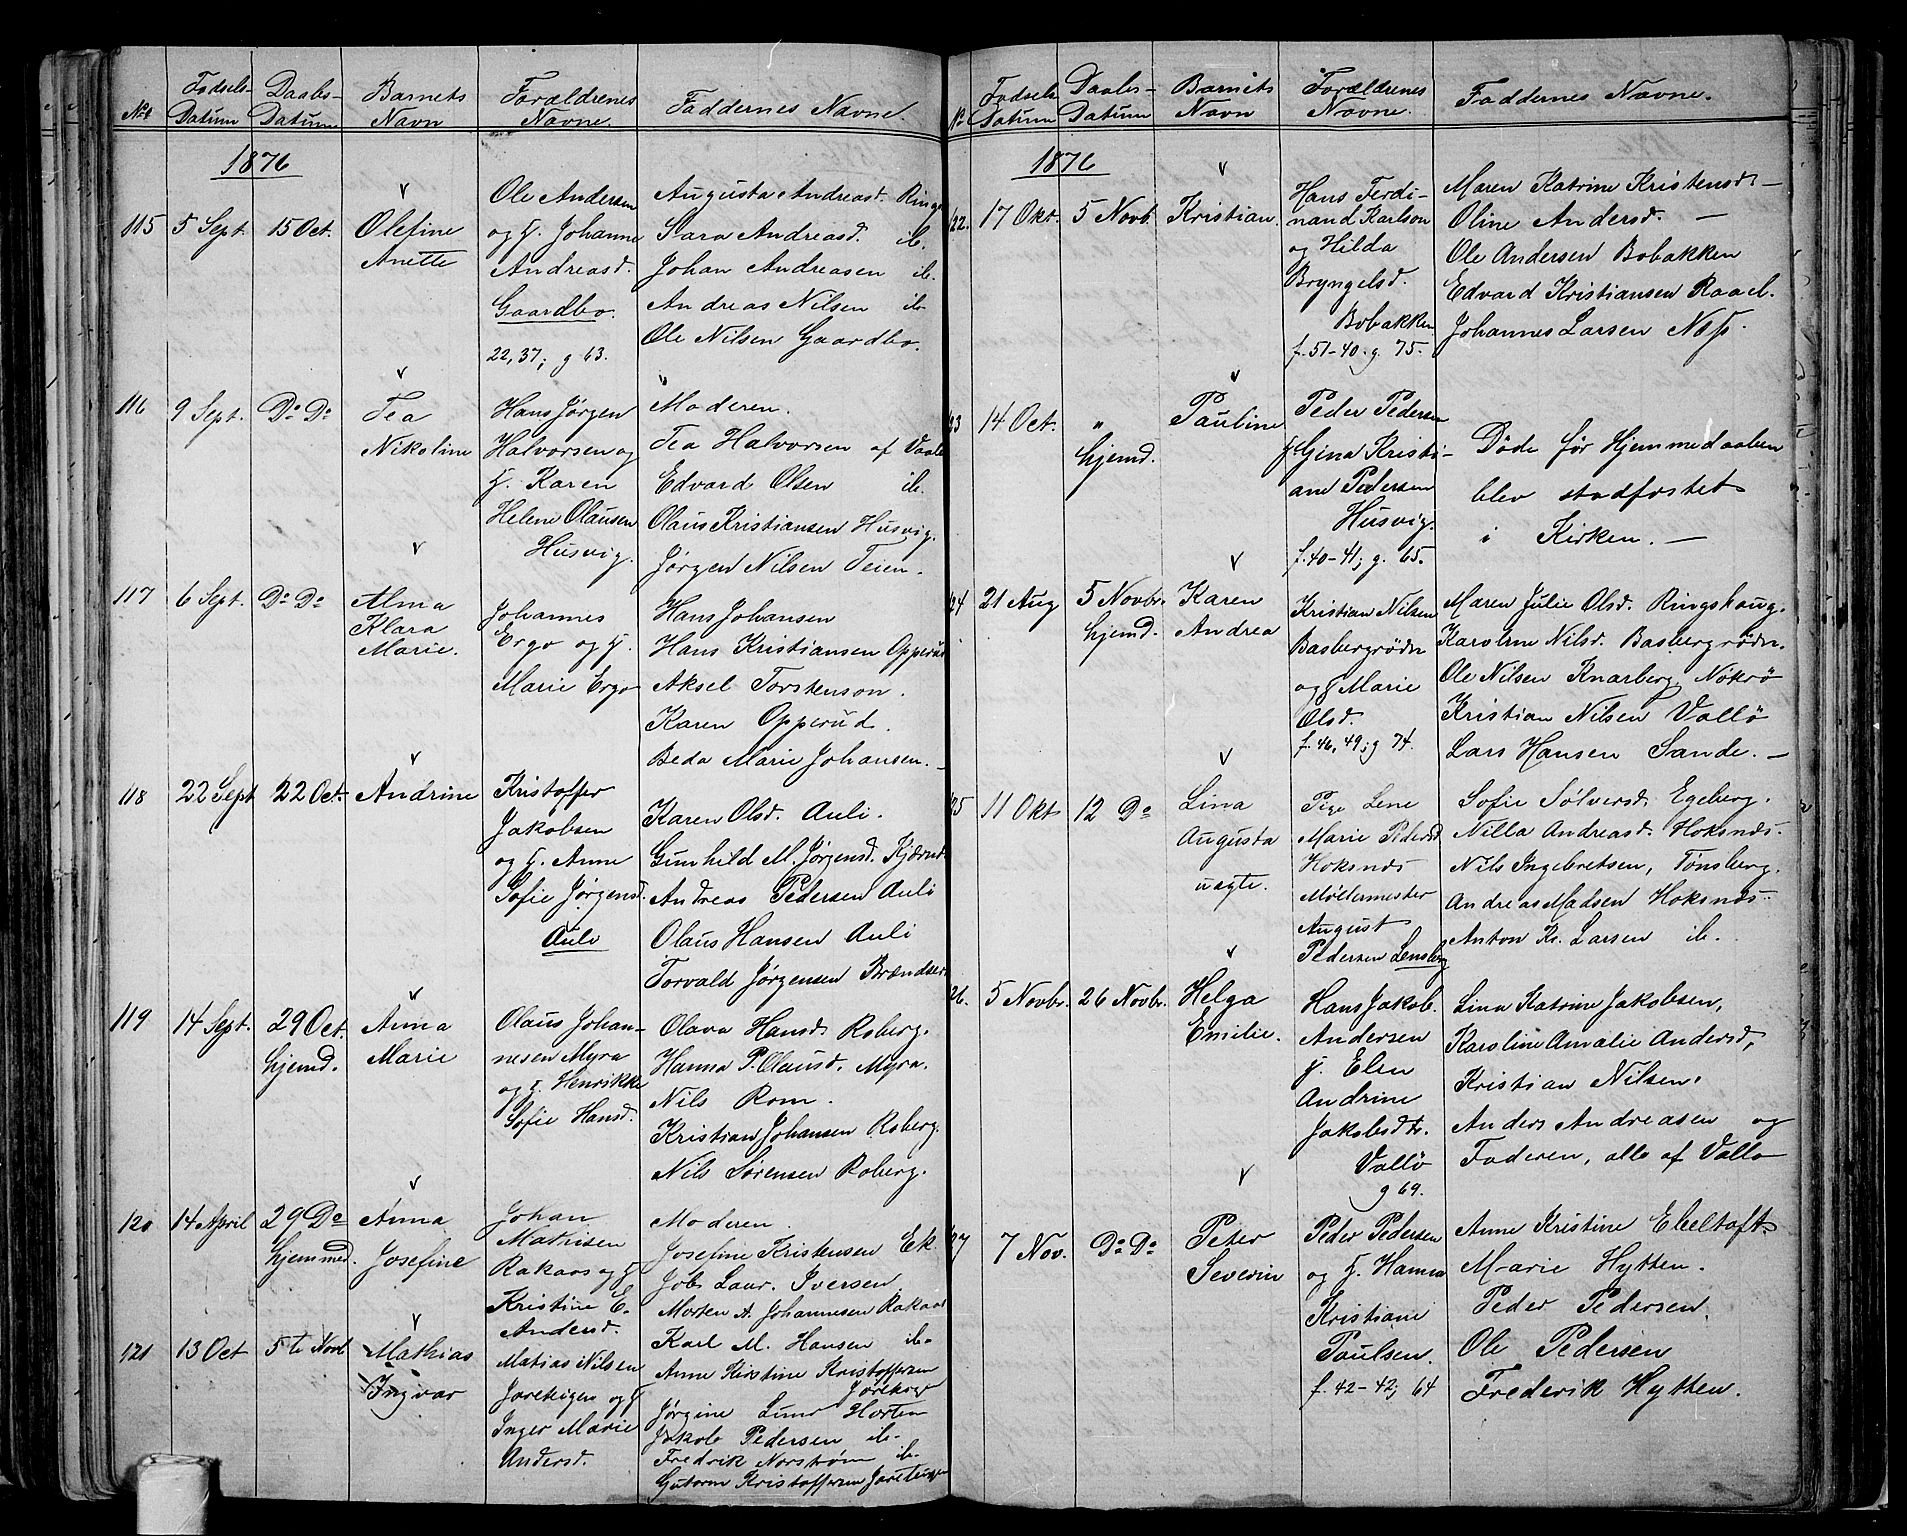 No Fødsels Datum Daabs-Datum Barnets Navn Forældrenes Navne Faddernes Navne.
1876
115 5 Sept. 15 Oct. Olefine Anette
Ole Andersen
og H. Johanne
Andreasd.
Gaardbo.
22, 37; g 63.
Augusta Andreasd.
Sara Andreasd. ib.
Johan Andreasen ib.
Andreas Nilsen ib
Ole Nilsen Gaardbo.
116 9 Sept. Do Do Tea Nikoline
Hans Jørgen
Halvorsen og
H. Karen
Helene Olausen
Husvig.
Moderen.
Tea Halvorsen af
Edvard Olsen ib.
Olaus Kristiansen Husvig.
Jørgen Nilsen Teien.
117 6 Sept. Do Do Alma Klara Marie.
Johannes
Ergo og H.
Marie Ergo
Hans Johansen
Hans Kristiansen Opperud
Aksel Torstenson.
Karen Opperud.
Beda Marie Johansen.
118 22 Sept 22 Oct. Andrine
Kristoffer
Jakobsen
og H. Anne
Sofie Jørgensd.
Auli
Karen Olsd. Auli.
Gunhild M. Jørgensd.
Andreas Pedersen Auli
Olaus Hansen Auli
Torvald Jørgensen
119 14 Sept. 29 Oct. hjemd. Anna Marie
Olaus Johan-
nesen Myra
og H. Henrikke
Sofie Hansd.
Olava Hansd. Roberg.
Hanna P. Olausd. Myra.
Nils Rom.
Kristian Johansen Roberg.
Nils Sørensen Roberg.
120 14 April 29 Do hjemmed. Anna Josefine
Johan
Mathisen
Rakaas og H
Kristine E.
Andersd.
Moderen.
Josefine Kristensen Ek.
Job Laur. Iversen
Morten A. Johannesen Rakaas
Karl M. Hansen ib.
121 13 Oct 5te Novb Mathias Ingvar
Matias Nilsen
og H
Inger Marie
Andersd.
Anne Kirstine Kristoffersen
Jørgine Lund Horten
Jakob Pedersen ib.
Fredrik Norstrøm ib.
Gutorm Kristoffersen
No Fødsels Datum Daabs-Datum Barnets Navn Forældrenes Navne. Faddernes Navne.
1876
22. 17 Okt. 5 Novb. Kristian.
Hans Ferdi-
nand Karlson
og Hilda
Bryngelsd.
Bobakken
f. 51-40. g. 75.
Maren Katrine Kristensd. —
Oline Andersd. —
Ole Andersen Bobakken
Edvard Kristiansen Raael.
Johannes Larsen Næs.
23 14 Oct. " hjemd. Pauline
Peder Pedersen
H Gina Kristi-
ane Pedersen
Husvig.
f. 40-41; g. 65.
Døde før Hjemmedaaben
blev stadfæstet
i Kirken. —
24 21 Aug 5 Novbr. hjemd. Karen Andrea
Kristian Nilsen
Basbergrødn
og H Marie
Olsd.
f. 46, 49; g 74.
Maren Julie Olsd. Ringshaug.
Karoline Nilsd. Basbergrødn.
Ole Nilsen Knarberg, Nøtrø
Kristian Nilsen Vallø
Lars Hansen Sande. —
25 11 Okt 12 Do Lina Augusta uægte.
Pige Lene
Marie Pedersd
Hoksnes
Møllermester
August
Pedersen Lensberg
Sofie Sølversd. Egeberg.
Nilla Andreasd. Hoksnes.
Nils Ingebretsen, Tønsberg.
Andreas Madsen Hoksnes.
Anton Kr. Larsen ib.
26. 5 Novbr. 26 Novbr. Helga Emilie.
Hans Jakob
Andersen
H. Elen
Andrine
Jakobsdtr.
Vallø
g 69.
Lina Katrine Jakobsen,
Karoline Amalie Andersd,
Kristian Nilsen.
Anders Andreasen og
Faderen, alle af Vallø
27 7 Nov. Do Do Peter Severin
Peder Pedersen
og H. Hanna
Kristiane
Paulsen.
f. 42-42; 64
Anne Kristine Ebeltoft
Marie Hytten.
Peder Pedersen
Ole Pedersen
Frederik Hytten.